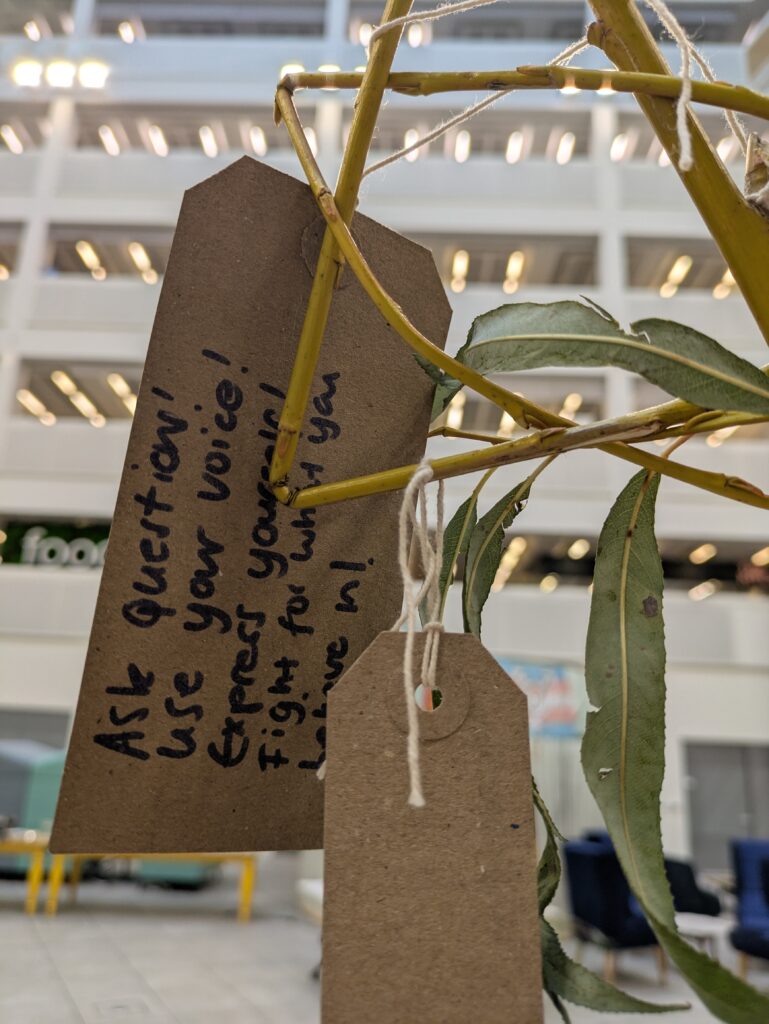 Ask question!
use your voice!
Express yourself!
Fight for what you
believe in!
foo